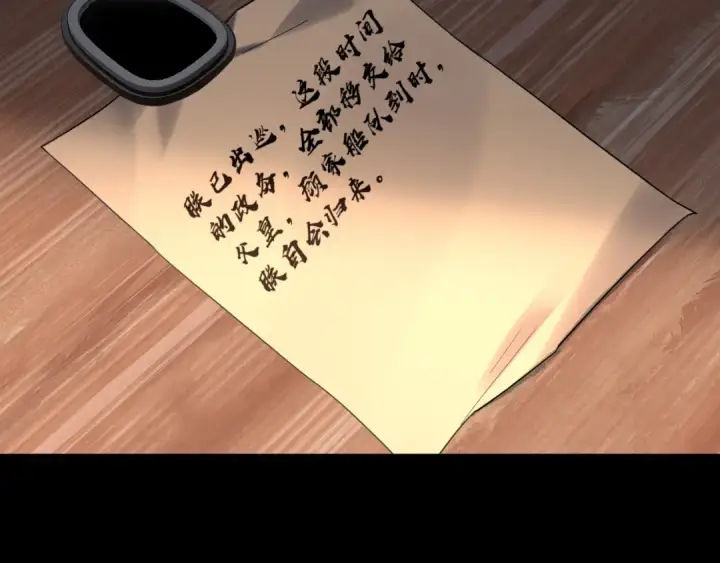 朕已出巡，这段时间
的政务，全部移交给
父皇，顾家船队到时，
朕自会归来。